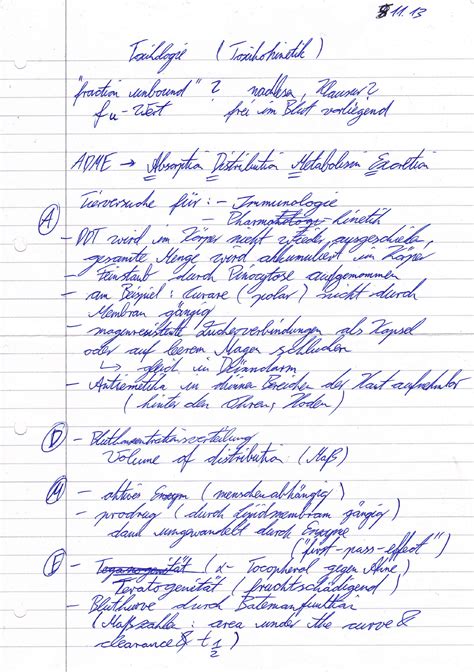 8.11.13
Toxikologie (Toxikokinetik)
"fraction unbound" ? nachlesen, Klausur?
fu-Wert frei im Blut vorliegend
ADME → Absorption Distribution Metabolism Excretion
Tierversuche für: - Immunologie
- Pharmakokinetik
(A) - DDT wird im Körper nicht wieder ausgeschieden,
gesamte Menge wird akkumuliert im Körper
- Feinstaub durch Pinocytose aufgenommen
- am Beispiel: Curare (polar) nicht durch
Membran gängig
- magenresistente Zuckerverbindungen als Kapsel
oder auf leerem Magen schlucken
↳ gleich in Dünndarm
- Antiemetika in dünnen Bereichen der Haut aufnehmbar
(hinter den Ohren, Hoden)
(D) - Blutkonzentrationsverteilung
Volume of distribution (Maß)
(M) - aktives Enzym (menschenabhängig)
- prodrug (durch Lipidmembram gängig)
dann umgewandelt durch Enzyme
("first-pass-effect")
(E) - (α-Tocopherol gegen Akne)
Teratogenität (fruchtschädigend)
- Blutkurve durch Batemanfunktion
(Maßzahlen: area under the curve &
clearance & t 1/2)